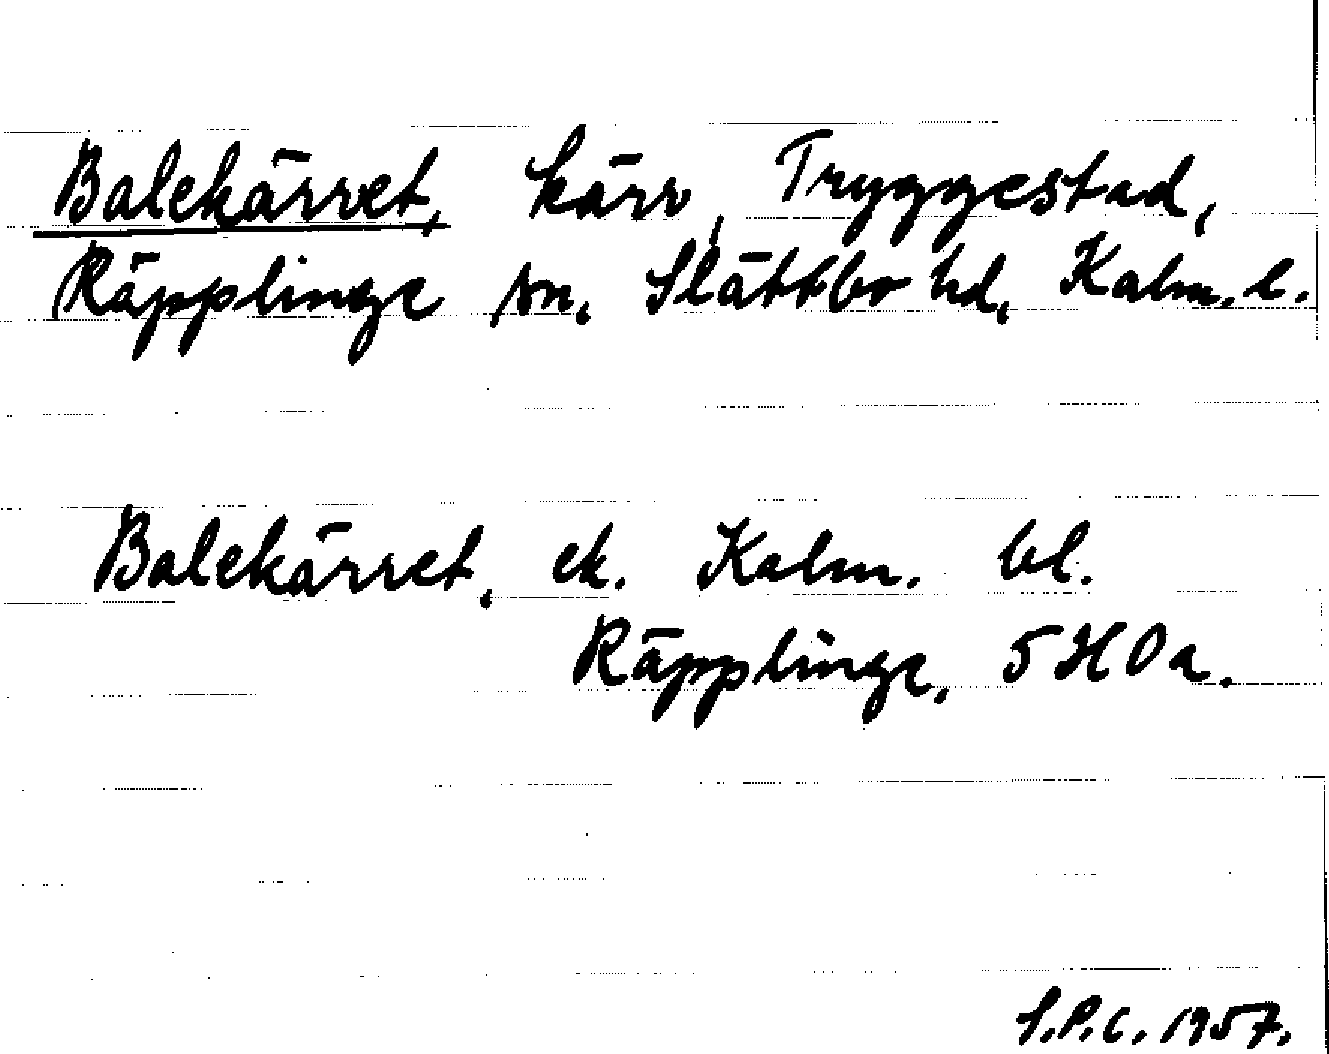 Balekärret, kärr, Tryggestad,
Räpplinge sn. Slättbo hd. Kalm. l.
Balekärret, ek. Kalm. bl.
Räpplinge, 5 H 0 a.
S.P.C. 1957.